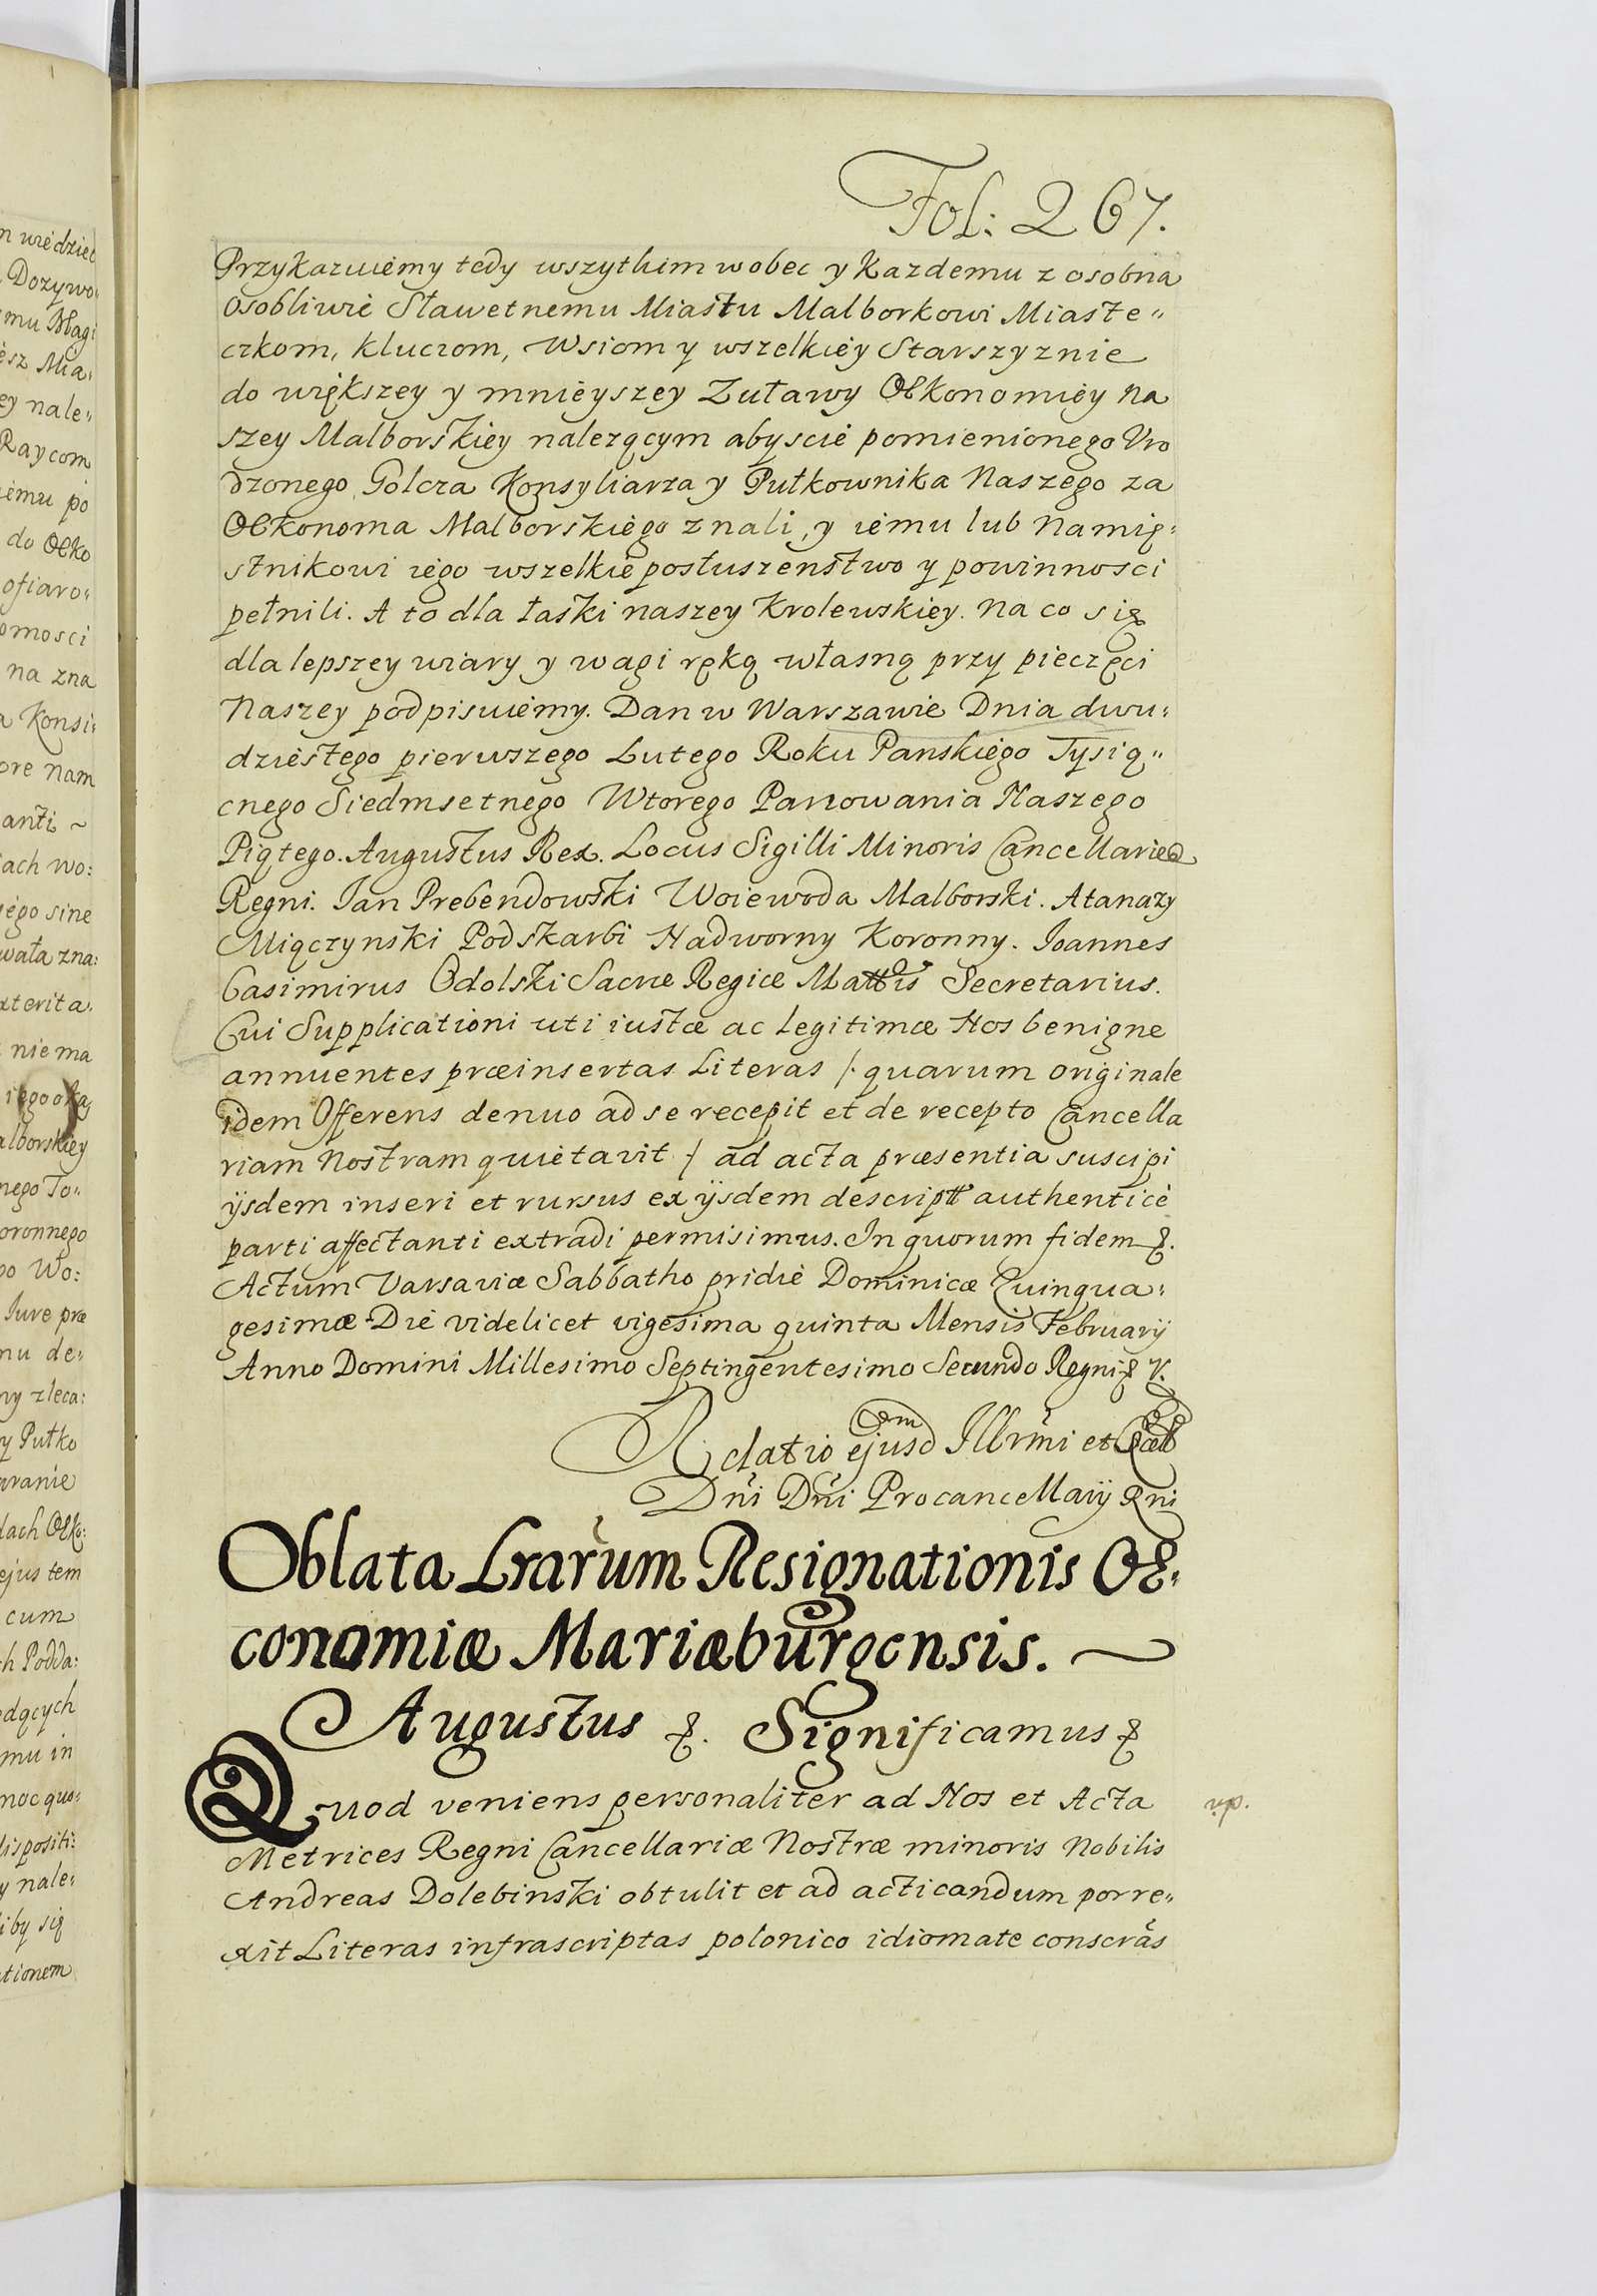 Fol: 267.
Przykazuiemy tedy wszytkim wobec y Kazdemu z osobna
osobliwie Sławetnemu Miastu Malborkowi Miaste„
czkom, kluczom, Wsiom y wszelkiey Starszyznie
do większey y mnieyszey Zuławy Oekonomiey Na
szey Malborskiey nalezącym abyscie pomienionego Vro
dzonego Golcza Konsyliarza y Pułkownika Naszego za
Oekonoma Malborskiego znali, y iemu lub Namię:
stnikowi iego wszelkie posłuszenstwo y powinnosci
pełnili. A to dla łaski naszey Krolewskiey. Na co się
dla lepszey wiary y wagi ręką własną przy pieczęci
Naszey podpisuiemy. Dan w Warszawie Dnia dwu:
dziestego pierwszego Lutego Roku Panskiego Tysią„
cnego Siedmsetnego Wtorego Panowania Naszego
Piątego. Augustus Rex. Locus Sigilli Minoris Cancellariæ
Regni. Jan Prebendowski Woiewoda Malborski. Atanazy
Miączynski Podskarbi Nadworny Koronny. Joannes
Casimirus Odolski Sacræ Regiæ Mattis Secretarius.
Cui Supplicationi uti iustæ ac legitimæ Nos benigne
annuentes præinsertas Literas /. quarum originale
idem Offerens denuo ad se recepit et de recepto Cancella
riam Nostram quietavit / ad acta præsentia suscipi
ijsdem inseri et rursus ex ijsdem descriptt authenticè
parti affectanti extradi permisimus. In quorum fidem &.
Actum Varsaviæ Sabbatho pridie Dominicæ Quinqua:
gesimæ Die videlicet vigesima quinta Mensis Februarij
Anno Domini Millesimo Septingentesimo Secundo Regni & V.
Relatio ejusdem Illrmi et
Dni Dni Procancellarij Rni
Oblata Lrarum Resignationis Oe:
conomiæ Mariæburgensis.
Augustus &. Significamus &
Quod veniens personaliter ad Nos et Acta
Metrices Regni Cancellariæ Nostræ minoris Nobilis
Andreas Dolebinski obtulit et ad acticandum porre„
xit Literas infrascriptas polonico idiomate conscras